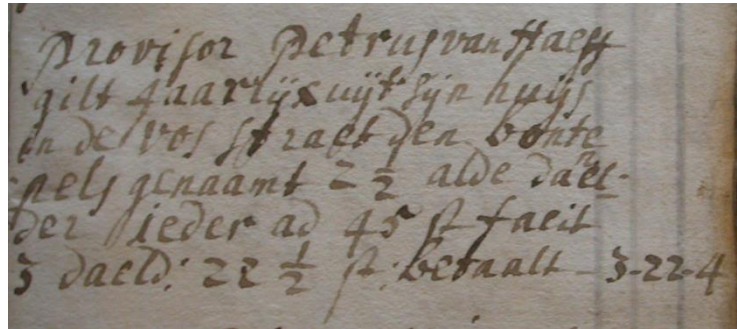 Provisor Petrus van Haess
gilt Jaarlijx uijt sijn huijs
in de vos straet den bonte
pels genaamt 2 1/2 alde dael-
der ieder ad 45 st facit
3 daeld: 22 1/2 st: betaalt - 3-22-4